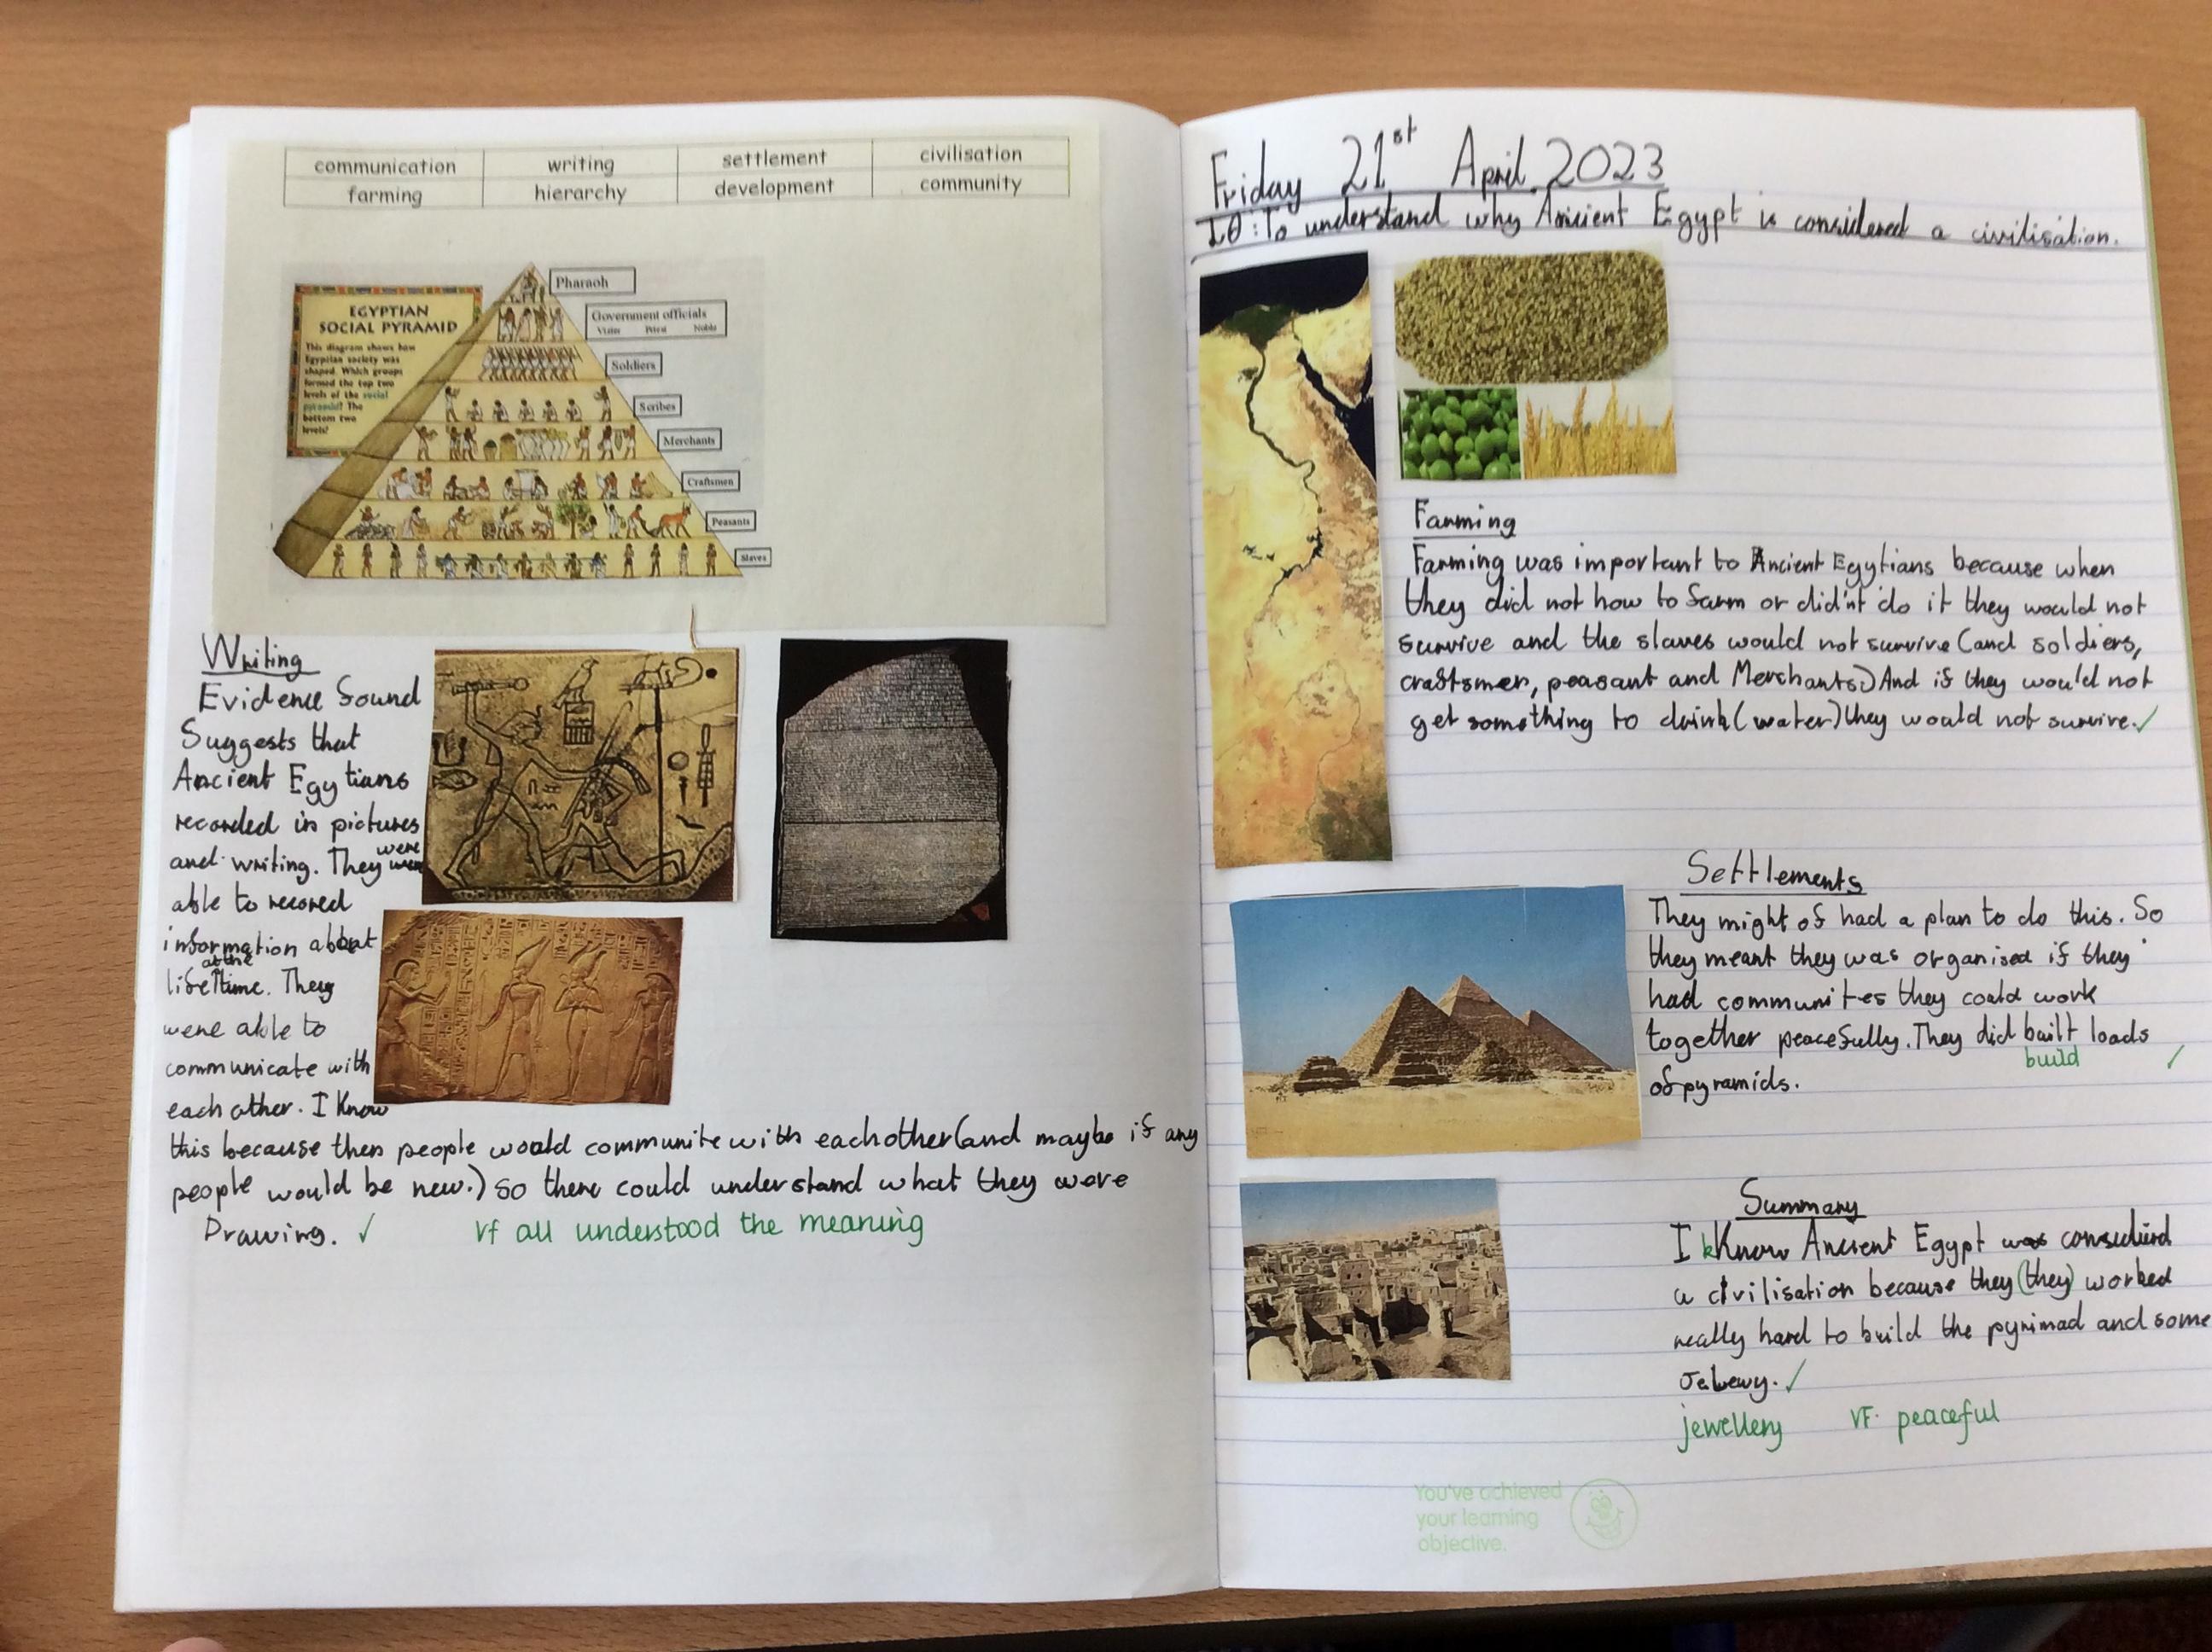 communication writing settlement civilisation
farming hierarchy development community
EGYPTIAN
SOCIAL PYRAMID
This diagram shows how
Egyptian society was
shaped. Which groups
formed the top two
levels of the social
pyramid? The
bottom two
levels?
Pharaoh
Government officials
Vizier Priest Noble
Soldiers
Scribes
Merchants
Craftsmen
Peasants
Slaves
Writing
Evidence found
Suggests that
Ancient Egytians
recorded in pictures
and writing. They were
able to recored
information about
life at the time. They
were able to
communicate with
each other. I Know
this because then people would communite with eachother (and maybe if any
people would be new.) so there could understand what they were
Drawing. ✓ VF all understood the meaning
Friday 21st April 2023
LO: To understand why Ancient Egypt is considered a civilisation.
Farming
Farming was important to Ancient Egytians because when
they did not how to farm or did'nt do it they would not
survive and the slaves would not survive (and soldiers,
craftsmen, peasant and Merchants.) And if they would not
get something to drink (water) they would not survive. ✓
Settlements
They might of had a plan to do this. So
they meant they was organised if they
had communites they could work
together peacefully. They did built loads
build ✓
of pyramids.
Summary
I kKnow Ancient Egypt was
a civilisation because they (they) worked
really hard to build the pyrimad and some
✓
jewellery VF. peaceful
You've achieved
your learning
objective.